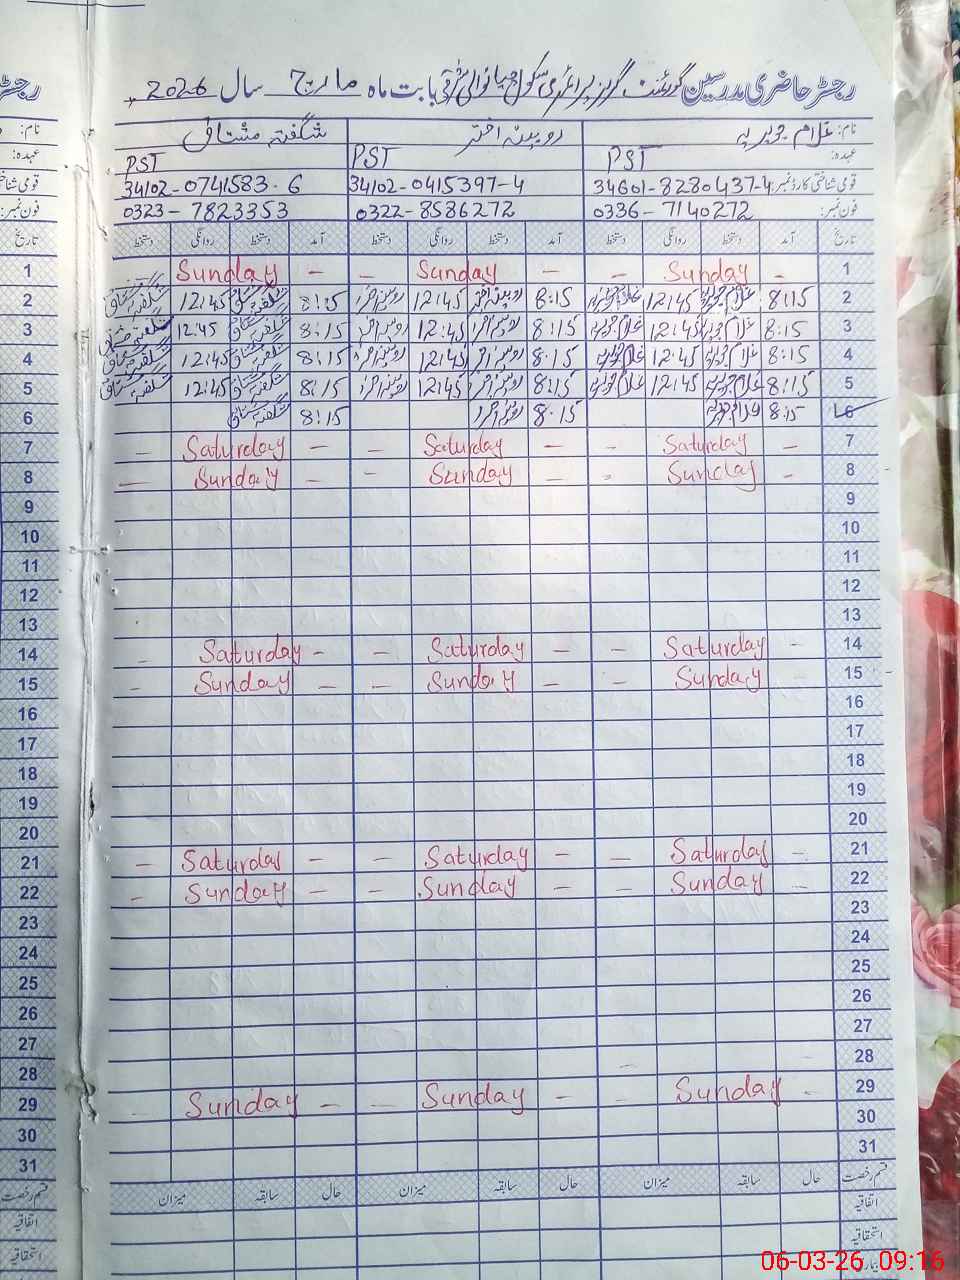 رجسٹر حاضری مدرسین گورنمنٹ گرلز پرائمری سکول میانوالی شرقی بابت ماہ مارچ سال 2026
نام: غلام جویریہ روبینہ اختر شگفتہ مشتاق
عہدہ: PST PST PST
قومی شناختی کارڈ نمبر: 34601-8280437-4 34102-0415397-4 34102-0741583-6
فون نمبر: 0336-7140272 0322-8586272 0323-7823353
تاریخ آمد دستخط روانگی دستخط آمد دستخط روانگی دستخط آمد دستخط روانگی دستخط تاریخ
1 Sunday - - Sunday - - Sunday - 1
2 شگفتہ مشتاق 12:45 شگفتہ مشتاق 8:15 روبینہ اختر 12:45 روبینہ اختر 8:15 غلام جویریہ 12:45 غلام جویریہ 8:15 2
3 شگفتہ مشتاق 12:45 شگفتہ مشتاق 8:15 روبینہ اختر 12:45 روبینہ اختر 8:15 غلام جویریہ 12:45 غلام جویریہ 8:15 3
4 شگفتہ مشتاق 12:45 شگفتہ مشتاق 8:15 روبینہ اختر 12:45 روبینہ اختر 8:15 غلام جویریہ 12:45 غلام جویریہ 8:15 4
5 شگفتہ مشتاق 12:45 شگفتہ مشتاق 8:15 روبینہ اختر 12:45 روبینہ اختر 8:15 غلام جویریہ 12:45 غلام جویریہ 8:15 5
6 شگفتہ مشتاق 8:15 روبینہ اختر 8:15 غلام جویریہ 8:15 6
7 - Saturday - - Saturday - - Saturday - 7
8 - Sunday - - Sunday - - Sunday - 8
9 9
10 10
11 11
12 12
13 13
14 - Saturday - - Saturday - - Saturday - 14
15 - Sunday - - Sunday - - Sunday - 15
16 16
17 17
18 18
19 19
20 20
21 - Saturday - - Saturday - - Saturday - 21
22 - Sunday - - Sunday - - Sunday - 22
23 23
24 24
25 25
26 26
27 27
28 28
29 - Sunday - - Sunday - - Sunday - 29
30 30
31 31
قسم رخصت حال سابقہ میزان حال سابقہ میزان حال سابقہ میزان قسم رخصت
اتفاقیہ اتفاقیہ
استحقاقیہ استحقاقیہ
06-03-26 09:16